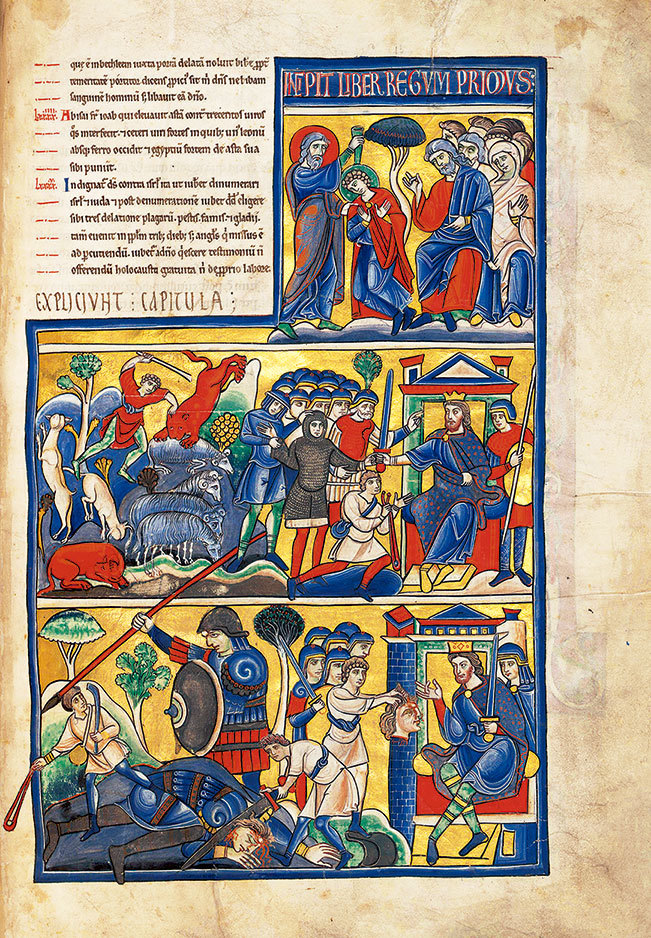 que ē in bethleem iuxta portā delatā noluit bibē
temeritatē portitor dicens sit m̄ dn̄s ne bibam
sanguinē hominū ⁊ libauit eā dn̄o.
Abisai fr̄ ioab qui eleuauit astā cont̄ trecentos uiros
q̄s interfecit. ⁊ ceteri uiri fortes in quib; un᷒ leonē
absq; ferro occidit ⁊ egyptiū fortem de asta sua
sibi puniit.
lxxxv. Indignat᷒ ds̄ contra isrł ita ut iuberet dinumerari
isrł ⁊ iuda ⁊ post denumerationē iubet dd̄ eligere
sibi tres delatione plagarū. pestis. famis. ⁊ gladii
tam̄ euenit in pplm̄ trib; dieb; ⁊ angl̄s q̄ missus ē
ad ꝑcutiendū. iubet̄ a dn̄o q̄escere testimoniū n̄
offerendū holocausta gratuita n̄ de ꝓprio labore.
EXPLICIVNT : CAPITULA ;
INCIPIT LIBER. REGVM PRIMVS: